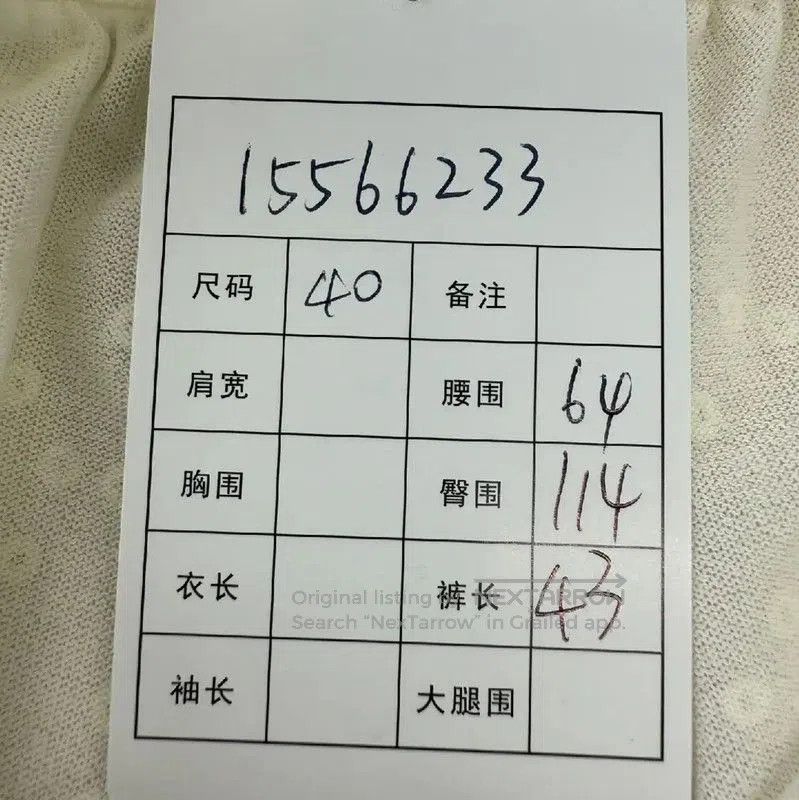 15566233
尺码 40 备注
肩宽 腰围 64
胸围 臀围 114
衣长 裤长 43
Original listing by NEXTARROW
Search "NexTarrow" in Grailed app.
袖长 大腿围